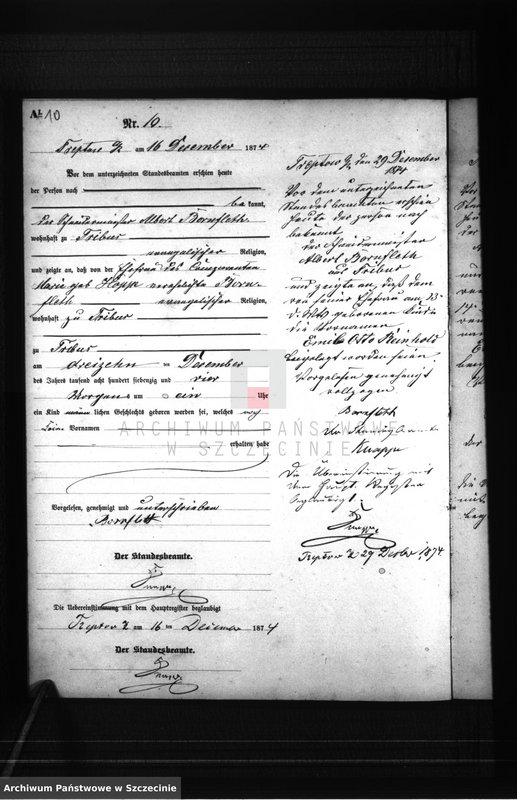 № 10
Nr. 10.
Treptow a/R am 16 Desember 1874
Vor dem unterzeichneten Standesbeamten erschien heute
der Person nach
be kannt,
der Schneidermeister Albert Bornfleth
wohnhaft zu Tribus
evangelischer Religion,
und zeigte an, daß von der Ehefrau des Comparenten
Marie geb Höpp verehelichte Born-
fleth evangelischer Religion,
wohnhaft zu Tribus
zu Tribus
am dreizehn ten Desember
des Jahres tausend acht hundert siebenzig und vier
Morgens um ein Uhr
ein Kind männlichen Geschlecht geboren worden sei, welches noch
keine Vornamen
erhalten habe
Vorgelesen, genehmigt und unterschrieben
Bornflett
Der Standesbeamte.
Knappe
Die Uebereinstimmung mit dem Hauptregister beglaubigt
Treptow am 16 ten Desember 1874
Der Standesbeamte.
Knappe
Treptow a/R den 29 Desember
1874
Vor dem unterzeichneten
Standesbeamten erschien
heute der Person nach
bekannt
der Schneidermeister
Albert Bornfleth
aus Tribus
und zeigte an, daß dem
von seiner Ehefrau am 13
d. Mts geborenen Kinde
die Vornamen
Emil Otto Reinhold
beigelegt worden seien.
Vorgelesen genehmigt
vollzogen
Bornflett
Der Standesbeamte
Knappe
Die Übereinstimmung mit
dem Haupt Register
beglaubigt
Knappe
Treptow 29 Desbr 1874
ARCHIWUM PAŃSTWOWE
W SZCZECINIE
Archiwum Państwowe w Szczecinie